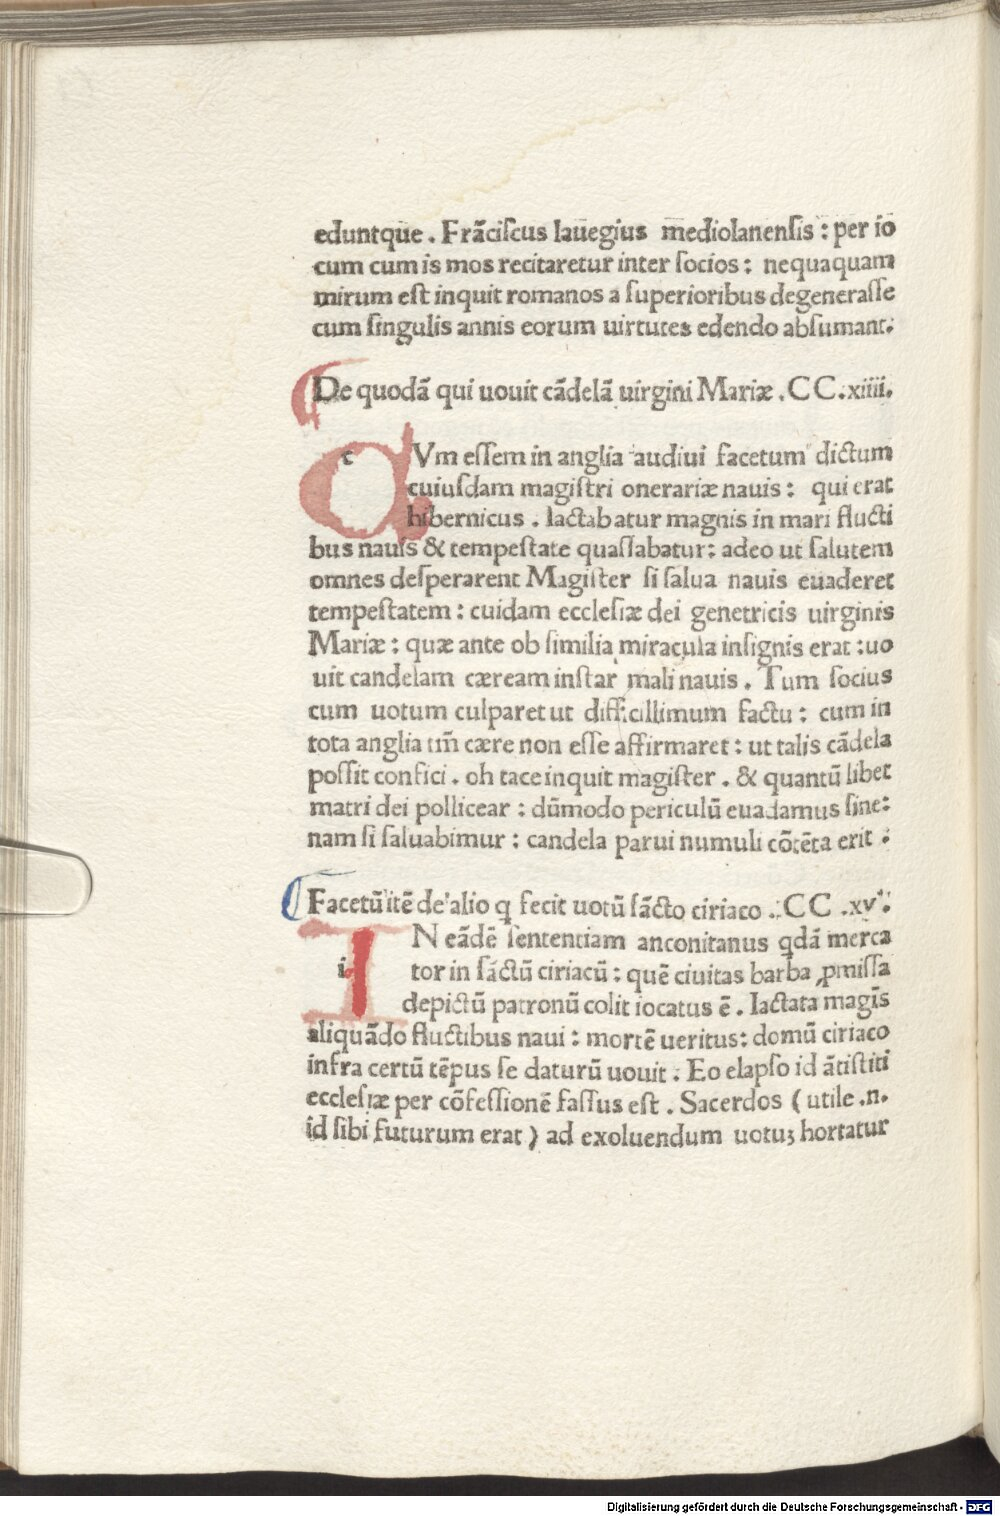 eduntque . Frãciſcus lauegius mediolanenſis : per io
cum cum is mos recitaretur inter ſocios : nequaquam
mirum eſt inquit romanos a ſuperioribus degeneraſſe
cum ſingulis annis eorum uirtutes edendo abſumant.
De quodã qui uouit cãdelã uirgini Mariæ . CC . xiiii.
c Vm eſſem in anglia audiui facetum dictum
cuiuſdam magiſtri onerariæ nauis : qui erat
hibernicus . Iactabatur magnis in mari flucti
bus nauis & tempeſtate quaſſabatur : adeo ut ſalutem
omnes deſperarent Magiſter ſi ſalua nauis euaderet
tempeſtatem : cuidam eccleſiæ dei genetricis uirginis
Mariæ : quæ ante ob ſimilia miracula inſignis erat : uo
uit candelam cæream inſtar mali nauis . Tum ſocius
cum uotum culparet ut difficillimum factu : cum in
tota anglia tm̃ cære non eſſe affirmaret : ut talis cãdela
poſſit confici . oh tace inquit magiſter . & quantũ libet
matri dei pollicear : dũmodo periculũ euadamus ſine :
nam ſi ſaluabimur : candela parui numuli cõtẽta erit :
Facetũ itẽ de alio q fecit uotũ ſãcto ciriaco . CC . xv .
i N eãdẽ ſententiam anconitanus qdã merca
tor in ſãctũ ciriacũ : quẽ ciuitas barba ꝓmiſſa
depictũ patronũ colit iocatus ẽ . Iactata magĩs
aliquãdo fluctibus naui : mortẽ ueritus : domũ ciriaco
infra certũ tẽpus ſe daturũ uouit . Eo elapſo id ãtiſtiti
eccleſiæ per cõfeſſionẽ faſſus eſt . Sacerdos ( utile .n.
id ſibi futurum erat ) ad exoluendum uotuꝫ hortatur
Digitalisierung gefördert durch die Deutsche Forschungsgemeinschaft - DFG